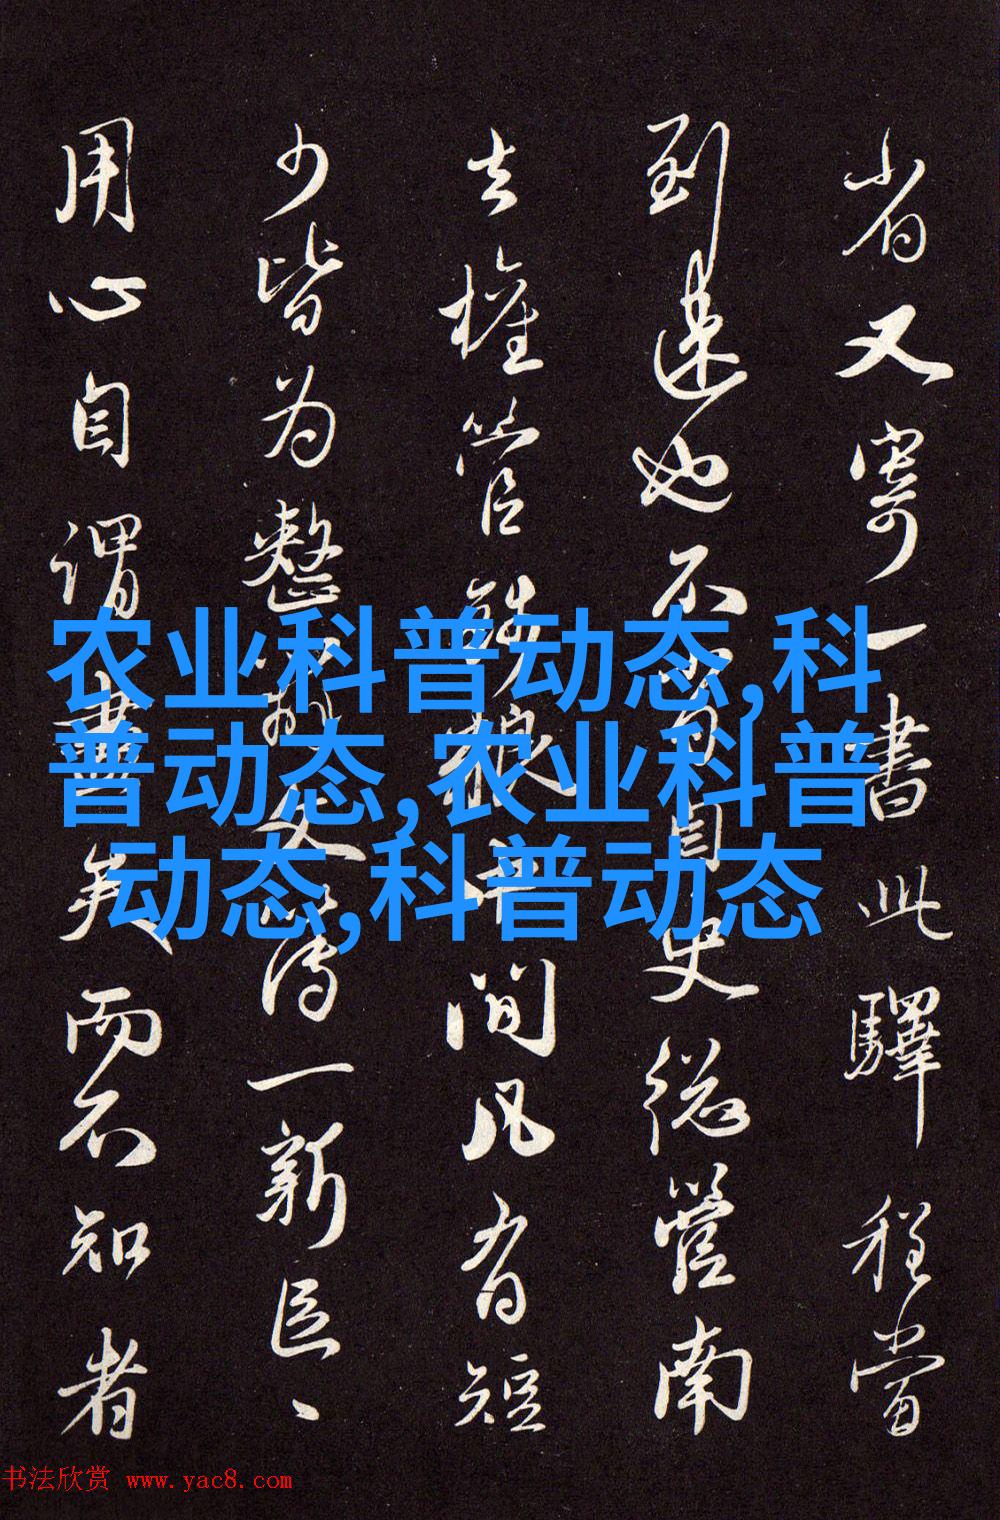 省又寄一書此驛程當
到遠也不
史総管南
去権管
粮
間凡有短
少皆为整
文
一新臣
用心自謂書矣而不知者
农业科普动态,科
普动态,农业科普
动态,科普动态
书法欣赏 www.yac8.com